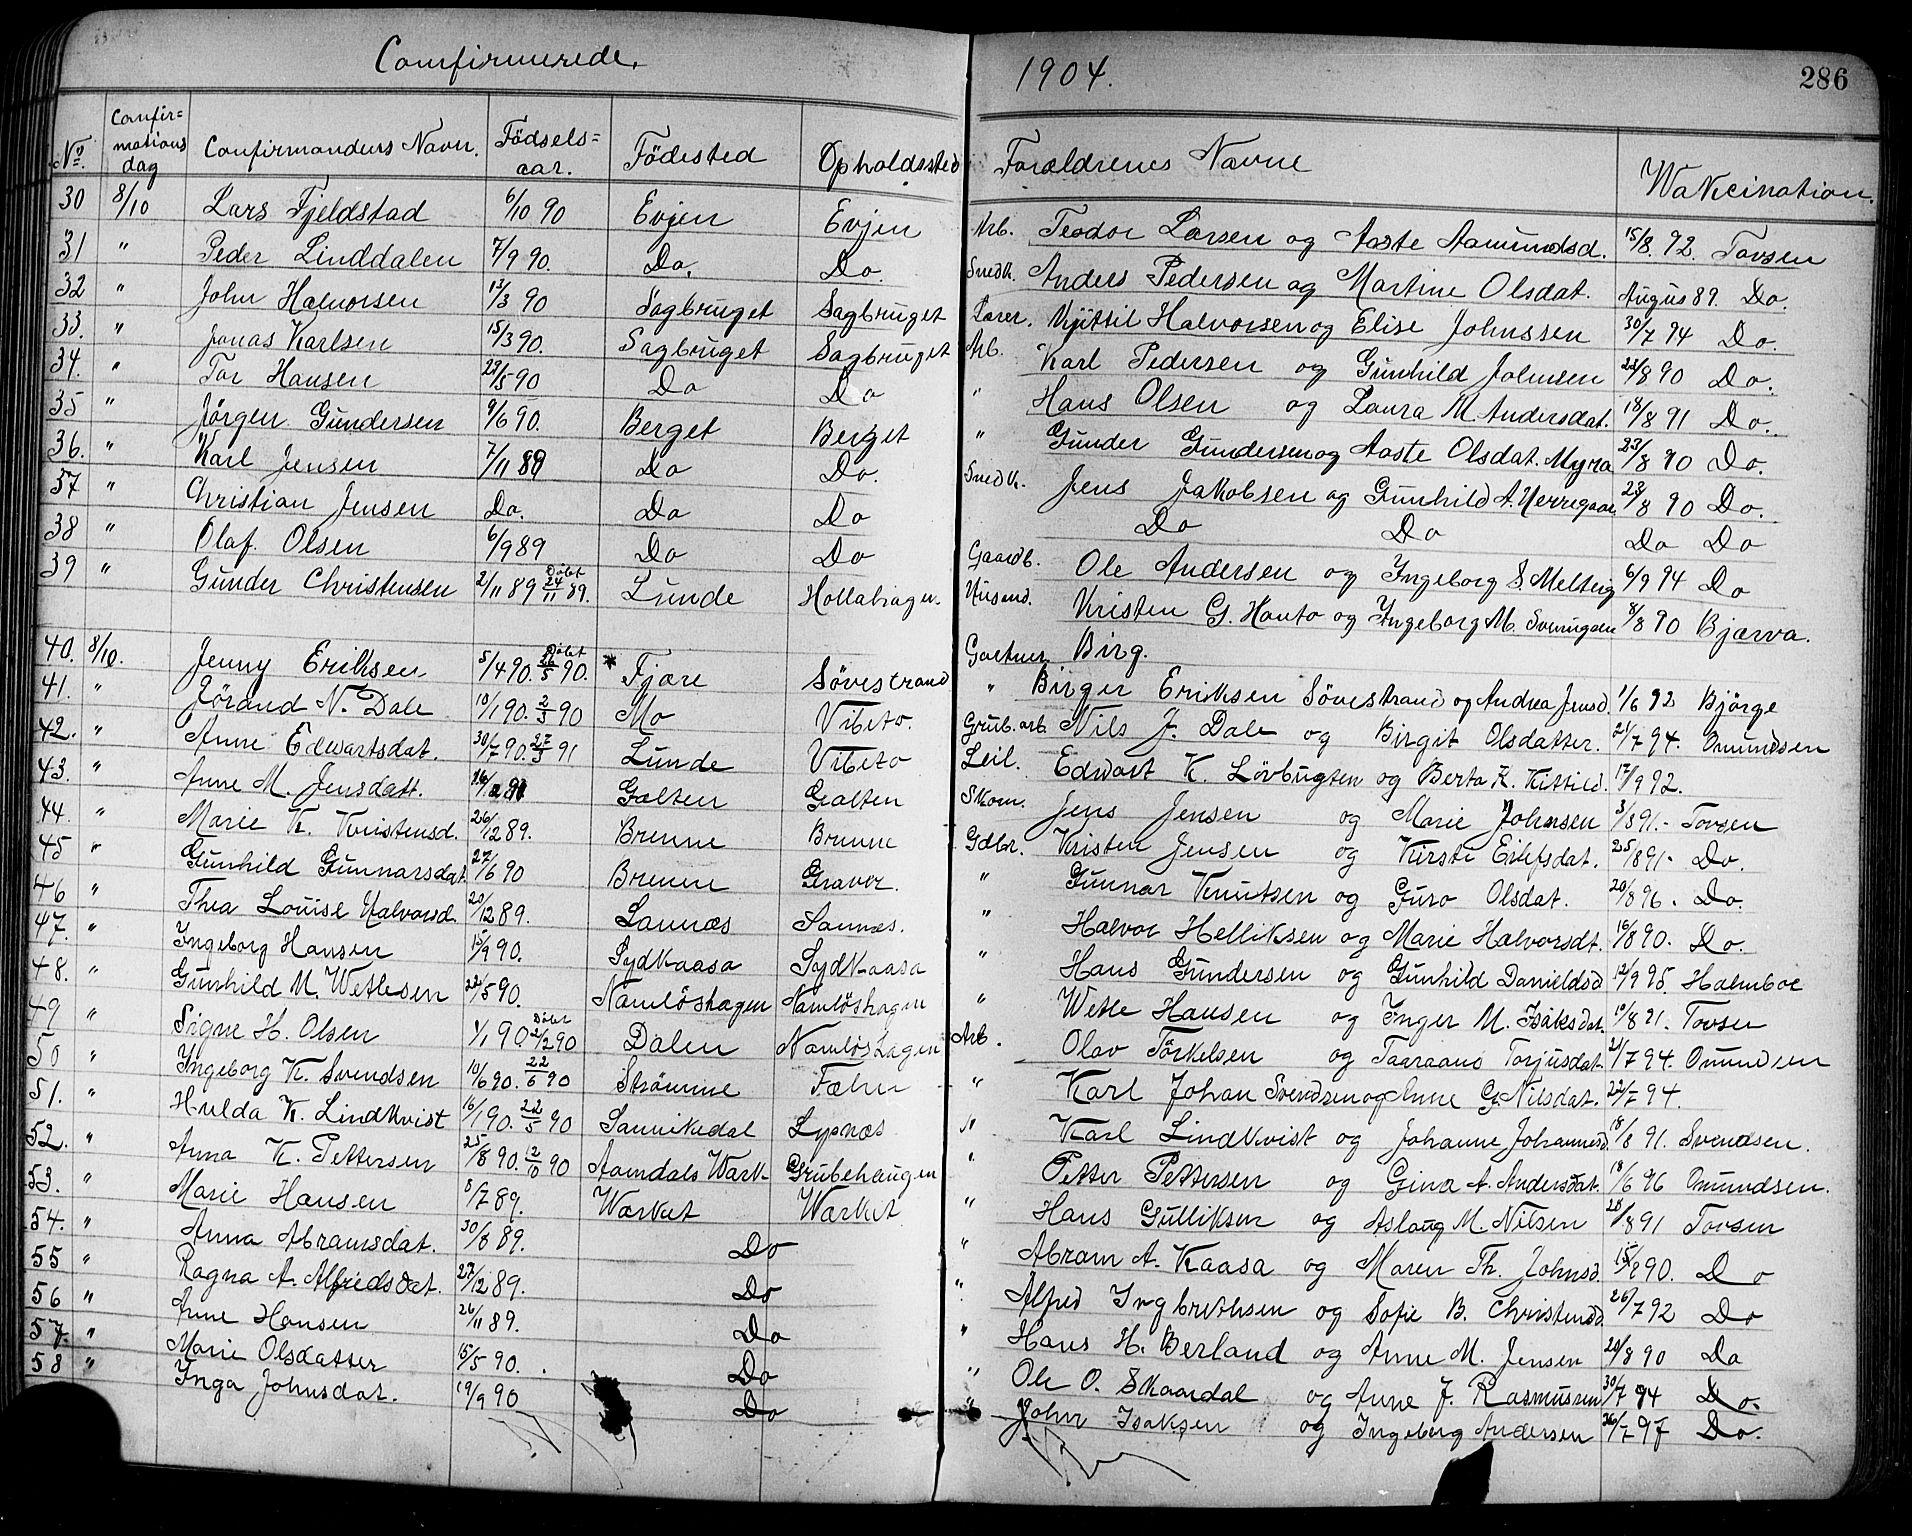 Comfirmerede. 1904. 286
No. Confir=mations dag Confirmandens Navn. Födsels=aar. Födested Opholdssted Forældrenes Navne Wakcination.
30 8/10 Lars Fjeldstad 6/10 90 Evjen Evjen Arb. Teodor Larsen og Aaste Aamundsd. 15/8. 92. Tovsen
31 " Peder Linddalen 7/9 90. Do. Do. Snedk. Anders Pedersen og Martine Olsdat. Augus 89. Do.
32 " John Halvorsen 13/3 90 Sagbruget Sagbruget Kjittil Halvorsen og Elise Johnssen 30/7 94 Do.
33. " Jonas Karlsen 15/3 90. Sagbruget Sagbruget Arb. Karl Pedersen og Gunhild Johnsen 23/8 90 Do.
34. " Tor Hansen 22/5 90 Do Do " Hans Olsen og Laura M. Andersdat. 18/8 91 Do.
35 " Jörgen Gundersen 9/6 90. Berget Berget " Gunder Gundersen og Aaste Olsdat. Myra 23/8 90 Do.
36. " Karl Jensen 7/11 89 Do Do. Snedk. Jens Jakobsen og Gunhild A. 23/8 90 Do.
37 " Christian Jensen Do. Do Do Do Do Do Do
38 " Olaf. Olsen 6/9 89 Do Do Gaardb. Ole Andersen og Ingeborg S. Melteig 6/9 94 Do
39 " Gunder Christensen 2/11 89 Döbt 24/11 89. Lunde Hollahagen. Husmd. Kristen G. Hauto og Ingeborg M. 8/8 90 Bjærva.
40. 8/10. Jenny Eriksen 5/4 90. Döbt 26/5 90. * Fjære Sövestrand Gartner Birg.
41. " Jörand N. Dale 10/1 90. 2/3 90 Mo Vibeto. " Birger Eriksen Sövestrand og Andrea Jensd. 1/6 92 Björge
42. " Anne Edwartsdat. 30/7 90. 27/3 91 Lunde Vibeto Grub. arb. Nils J. Dale og Birgit Olsdatter. 21/7 94. Omundsen
43. " Anne M. Jensdatt. Galten Galten Leil. Edwart K. Lövbugten og Berta K. Kittild. 17/9 92.
44. " Marie K. Kristensd. 26/12 89. Brenne Brenne Skom. Jens Jensen og Marie Johnsen 3/8 91.- Tovsen
45 " Gunhild Gunnarsdat 27/6 90 Brenne Graver. Gdbr. Kristen Jensen og Kirste Eilefsdat. 25/8 91- Do.
46 " Thea Louise Halvorsd. 20/12 89. Sannæs Sannæs. " Gunnar Knutsen og Guro Olsdat. 20/8 96. Do.
47. " Ingeborg Hansen 15/9 90. Sydkaasa Sydkaasa " Halvor Helliksen og Marie Halvorsdt. 16/8 90. Do.
48. " Gunhild M. Wetlesen 22/5 90. Namlöshagen Namlöshagen " Hans Gundersen og Gunhild Danieldsd 12/9 95. Holmboe
49 " Signe H. Olsen 1/1 90 Döbt 2/2 90 Dalen Namløshagen " Wetle Hansen og Inger M. Isaksdat. 10/8 91. Tovsen
50 " Ingeborg K. Svendsen 10/6 90. 22/6 90 Strömme Fæhn Arb. Olav Törkelsen og Taaraand Torjusdat. 21/7 94. Omundsen
51. " Hulda K. Lindkvist 16/1 90. 22/5 90 Sannikedal Lysnæs " Karl Johan Svendsen og Anne G. Nilsdat. 22/7 94.
52. " Anna K. Pettersen 25/8 90. 12/10 90 Aamdals Værk Grubehaugen " Karl Lindkvist og Johanne Johannesd 18/8 91. Svendsen.
53. " Marie Hansen 8/7 89. Wærket Wærket " Petter Pettersen og Gina A. Andersdat. 18/6 96 Omundsen.
54. " Anna Abramsdat. 30/8 89. Do " Hans Gulliksen og Aslaug M. Nilsen 28/8 91 Tovsen
55 " Ragna A. Alfredsdat. 27/12 89. Do " Abram A. Kaasa og Maren Th. Johnsd. 15/8 90. Do
56 " Anne Hansen 26/11 89. Do " Alfred Ingbrektsen og Sofie B. Christensd 26/7 92 Do
57. " Marie Olsdatter 15/5 90. Do " Hans H. Berland og Anne M. Jensen 20/8 90 Do
58 " Inga Johnsdat. 19/9 90 Do " Ole O. Skaardal og Anne J. Rasmussen 30/7 94 Do.
" John Isaksen og Ingeborg Andersen 26/7 97 Do.